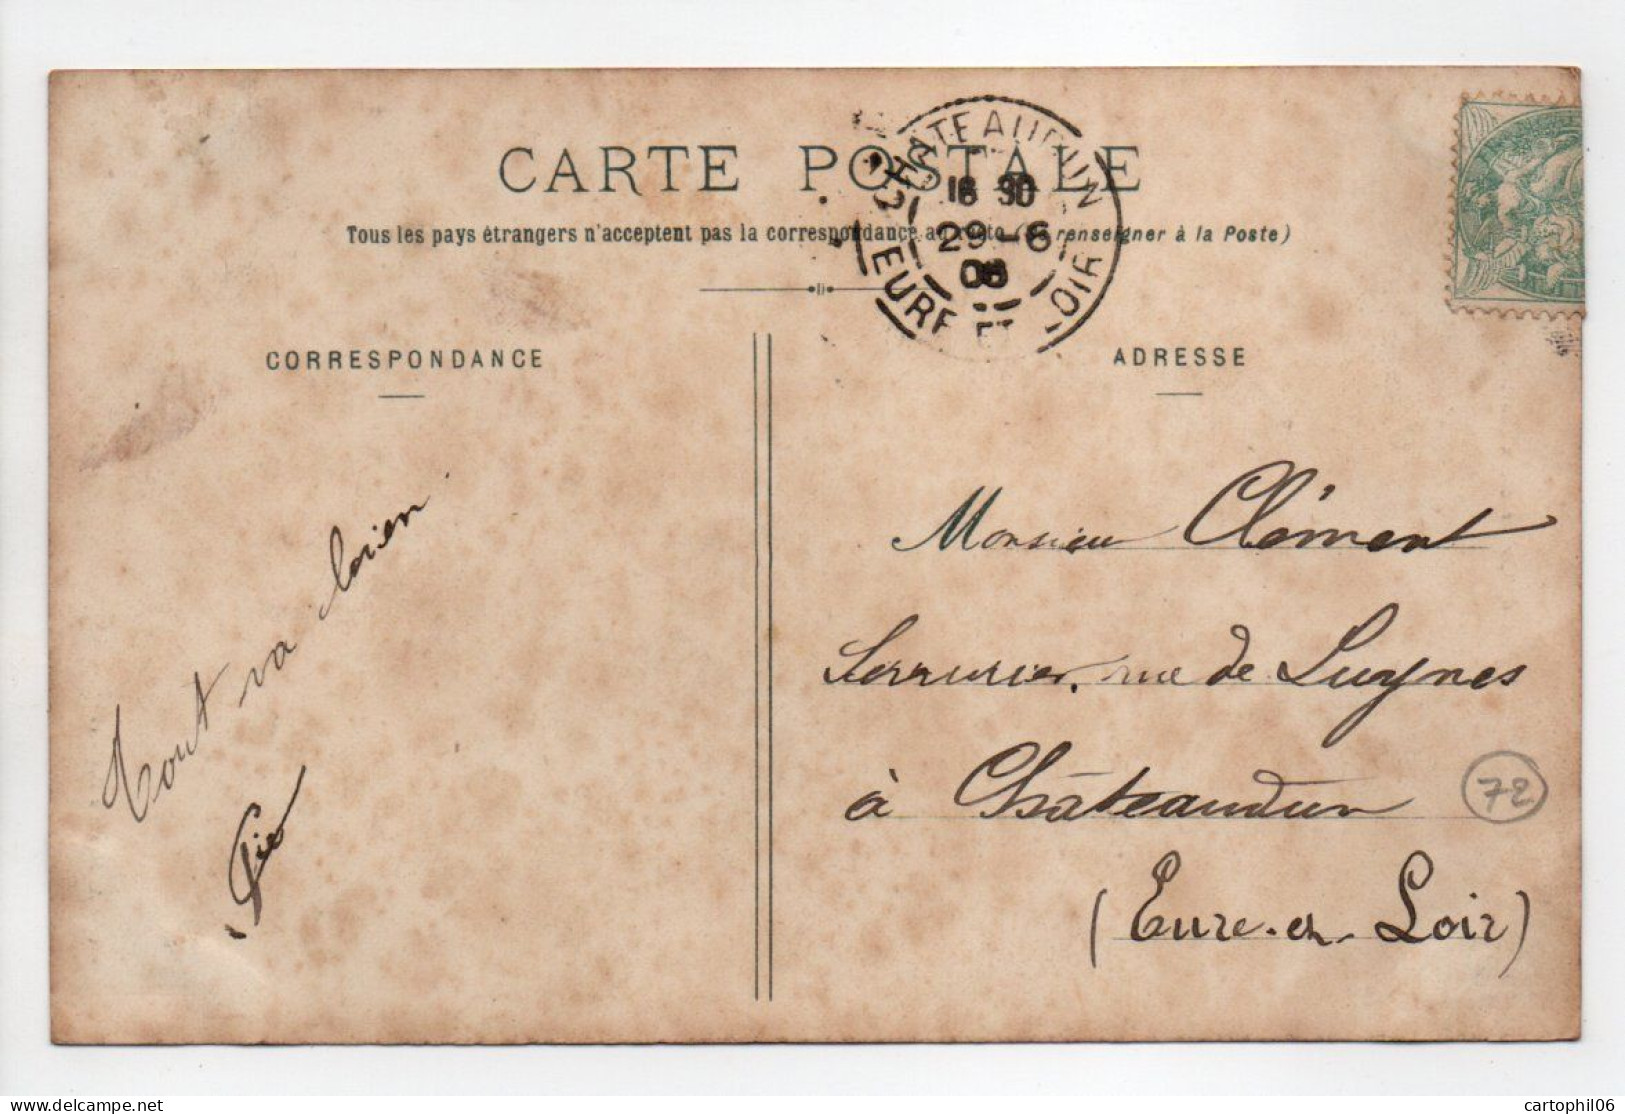 CARTE POSTALE
Tous les pays étrangers n'acceptent pas la correspondance au recto (Se renseigner à la Poste)
CHATEAUDUN
29-6
EURE ET LOIR
CORRESPONDANCE
ADRESSE
Tout va bien
Monsieur Clément
Serrurier, rue de Luynes
à Châteaudun
72
(Eure-et-Loir)
delcampe.net
cartophil06